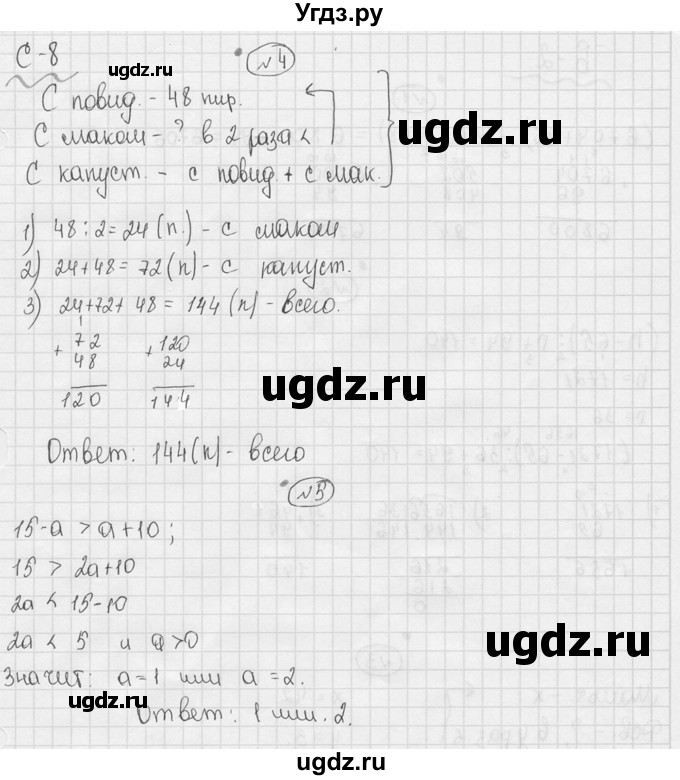 Угдз.ру
С-8
№4
ugdz.ru
С повид. - 48 пир.
С маком - ? в 2 раза <
ugdz.ru
С капуст. - с повид. + с мак.
1) 48 : 2 = 24 (п.) - с маком
2) 24 + 48 = 72 (п) - с капуст.
3) 24 + 72 + 48 = 144 (п) - всего.
1
+ 72 + 120
48 24
120 144
ugdz.ru
Ответ: 144 (п) - всего
№5
ugdz.ru
15 - а > а + 10 ;
15 > 2а + 10
2а < 15 - 10
2а < 5 и а > 0
ugdz.ru
Значит: а = 1 или а = 2.
ugdz.ru
Ответ: 1 или 2.
Угдз.ру